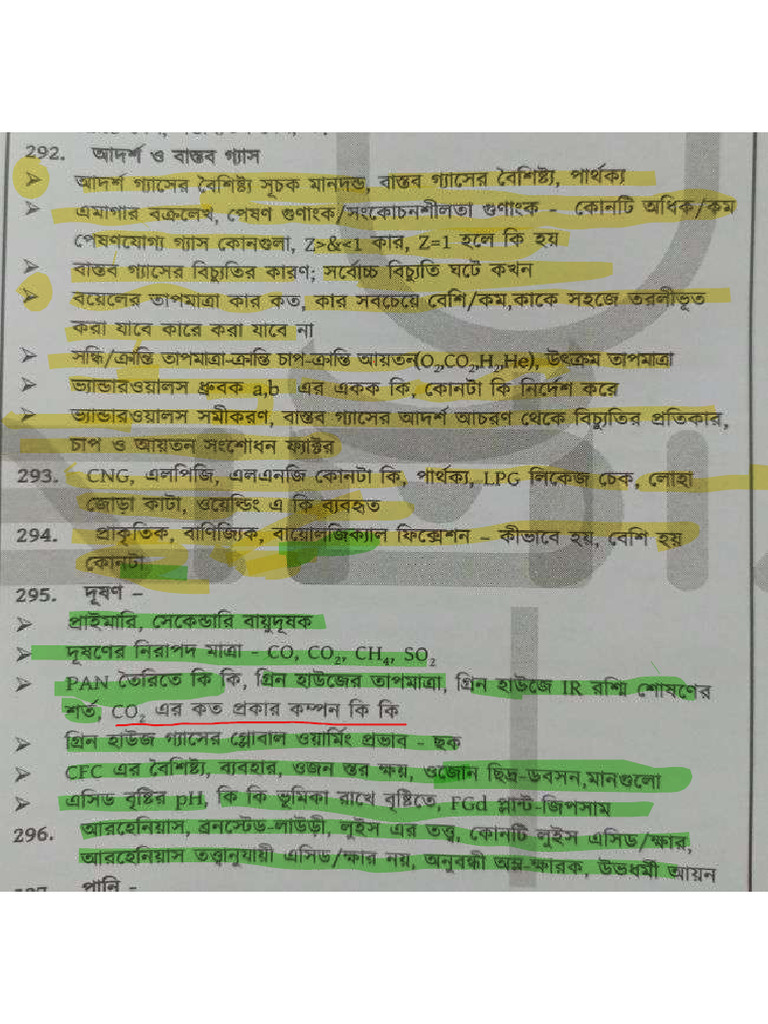 292. আদর্শ ও বাস্তব গ্যাস
➤ আদর্শ গ্যাসের বৈশিষ্ট্য সূচক মানদন্ড, বাস্তব গ্যাসের বৈশিষ্ট্য, পার্থক্য
➤ এমাগার বক্রলেখ, পেষণ গুণাংক/সংকোচনশীলতা গুণাংক – কোনটি অধিক/কম
পেষণযোগ্য গ্যাস কোনগুলা, Z>&<1 কার, Z=1 হলে কি হয়
➤ বাস্তব গ্যাসের বিচ্যুতির কারণ; সর্বোচ্চ বিচ্যুতি ঘটে কখন
➤ বয়েলের তাপমাত্রা কার কত, কার সবচেয়ে বেশি/কম,কাকে সহজে তরলীভূত
করা যাবে কারে করা যাবে না
➤ সন্ধি/ক্রান্তি তাপমাত্রা-ক্রান্তি চাপ-ক্রান্তি আয়তন(O₂,CO₂,H₂,He), উৎক্রম তাপমাত্রা
➤ ভ্যান্ডারওয়ালস ধ্রুবক a,b এর একক কি, কোনটা কি নির্দেশ করে
➤ ভ্যান্ডারওয়ালস সমীকরণ, বাস্তব গ্যাসের আদর্শ আচরণ থেকে বিচ্যুতির প্রতিকার,
চাপ ও আয়তন সংশোধন ফ্যাক্টর
293. CNG, এলপিজি, এলএনজি কোনটা কি, পার্থক্য, LPG লিকেজ চেক, লোহা
জোড়া কাটা, ওয়েল্ডিং এ কি ব্যবহৃত
294. প্রাকৃতিক, বাণিজ্যিক, বায়োলজিক্যাল ফিক্সেশন – কীভাবে হয়, বেশি হয়
কোনটা
295. দূষণ –
➤ প্রাইমারি, সেকেন্ডারি বায়ুদূষক
➤ দূষণের নিরাপদ মাত্রা – CO, CO₂, CH₄, SO₂
➤ PAN তৈরিতে কি কি, গ্রিন হাউজের তাপমাত্রা, গ্রিন হাউজে IR রশ্মি শোষণের
শর্ত, CO₂ এর কত প্রকার কম্পন কি কি
➤ গ্রিন হাউজ গ্যাসের গ্লোবাল ওয়ার্মিং প্রভাব – ছক
➤ CFC এর বৈশিষ্ট্য, ব্যবহার, ওজন স্তর ক্ষয়, ওজোন ছিদ্র-ডবসন,মানগুলো
➤ এসিড বৃষ্টির pH, কি কি ভূমিকা রাখে বৃষ্টিতে, FGd প্লান্ট-জিপসাম
296. আরহেনিয়াস, ব্রনস্টেড-লাউড়ী, লুইস এর তত্ত্ব, কোনটি লুইস এসিড/ক্ষার,
আরহেনিয়াস তত্ত্বানুযায়ী এসিড/ক্ষার নয়, অনুবন্ধী অম্ল-ক্ষারক, উভধর্মী আয়ন
পানি –